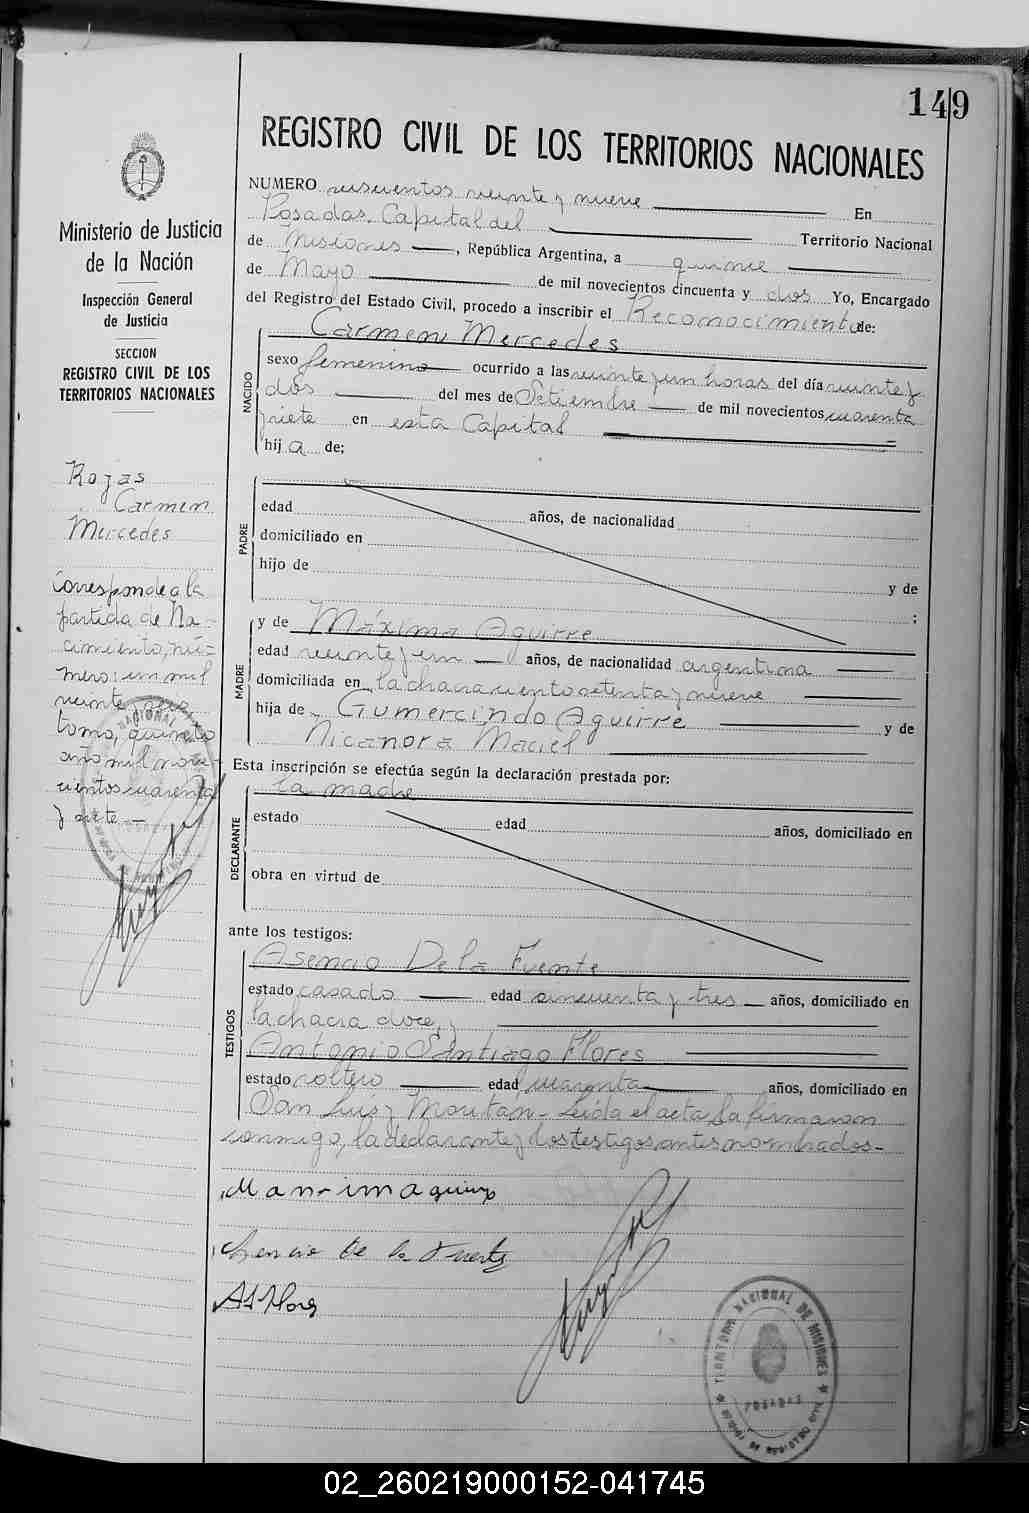 149
REGISTRO CIVIL DE LOS TERRITORIOS NACIONALES
Ministerio de Justicia
de la Nación
Inspección General
de Justicia
SECCION
REGISTRO CIVIL DE LOS
TERRITORIOS NACIONALES
Rojas
Carmen
Mercedes
Corresponde a la
partida de Na-
cimiento, nú=
mero: un mil
veinte
tomo, quinto
año mil nove
cientos cuarenta
y siete.-
NUMERO doscientos veinte y nueve En
Posadas, Capital del Territorio Nacional
de Misiones, República Argentina, a quince
de Mayo de mil novecientos cincuenta y dos Yo, Encargado
del Registro del Estado Civil, procedo a inscribir el Reconocimiento de:
NACIDO
Carmen Mercedes
sexo femenino ocurrido a las veinte y un horas del día veinte y
dos del mes de Setiembre de mil novecientos cuarenta
y siete en esta Capital
hija de;
PADRE
edad años, de nacionalidad
domiciliado en
hijo de y de
;
MADRE
y de Máxima Aguirre
edad veinte y un años, de nacionalidad argentina
domiciliada en la chacra ciento setenta y nueve
hija de Gumercindo Aguirre y de
Nicanora Maciel
Esta inscripción se efectúa según la declaración prestada por:
DECLARANTE
la madre
estado edad años, domiciliado en
obra en virtud de
ante los testigos:
TESTIGOS
Asencio De la Fuente
estado casado edad cincuenta y tres años, domiciliado en
la chacra doce, y
Antonio Santiago Flores
estado soltero edad cuarenta años, domiciliado en
San Luis y Moritán - Leída el acta la firmaron
conmigo, la declarante y los testigos antes nombrados-
Asencio De la Fuente
AS Flores
TERRITORIO NACIONAL DE MISIONES
POSADAS
OFICINA DE REGISTRO CIVIL
02_260219000152-041745